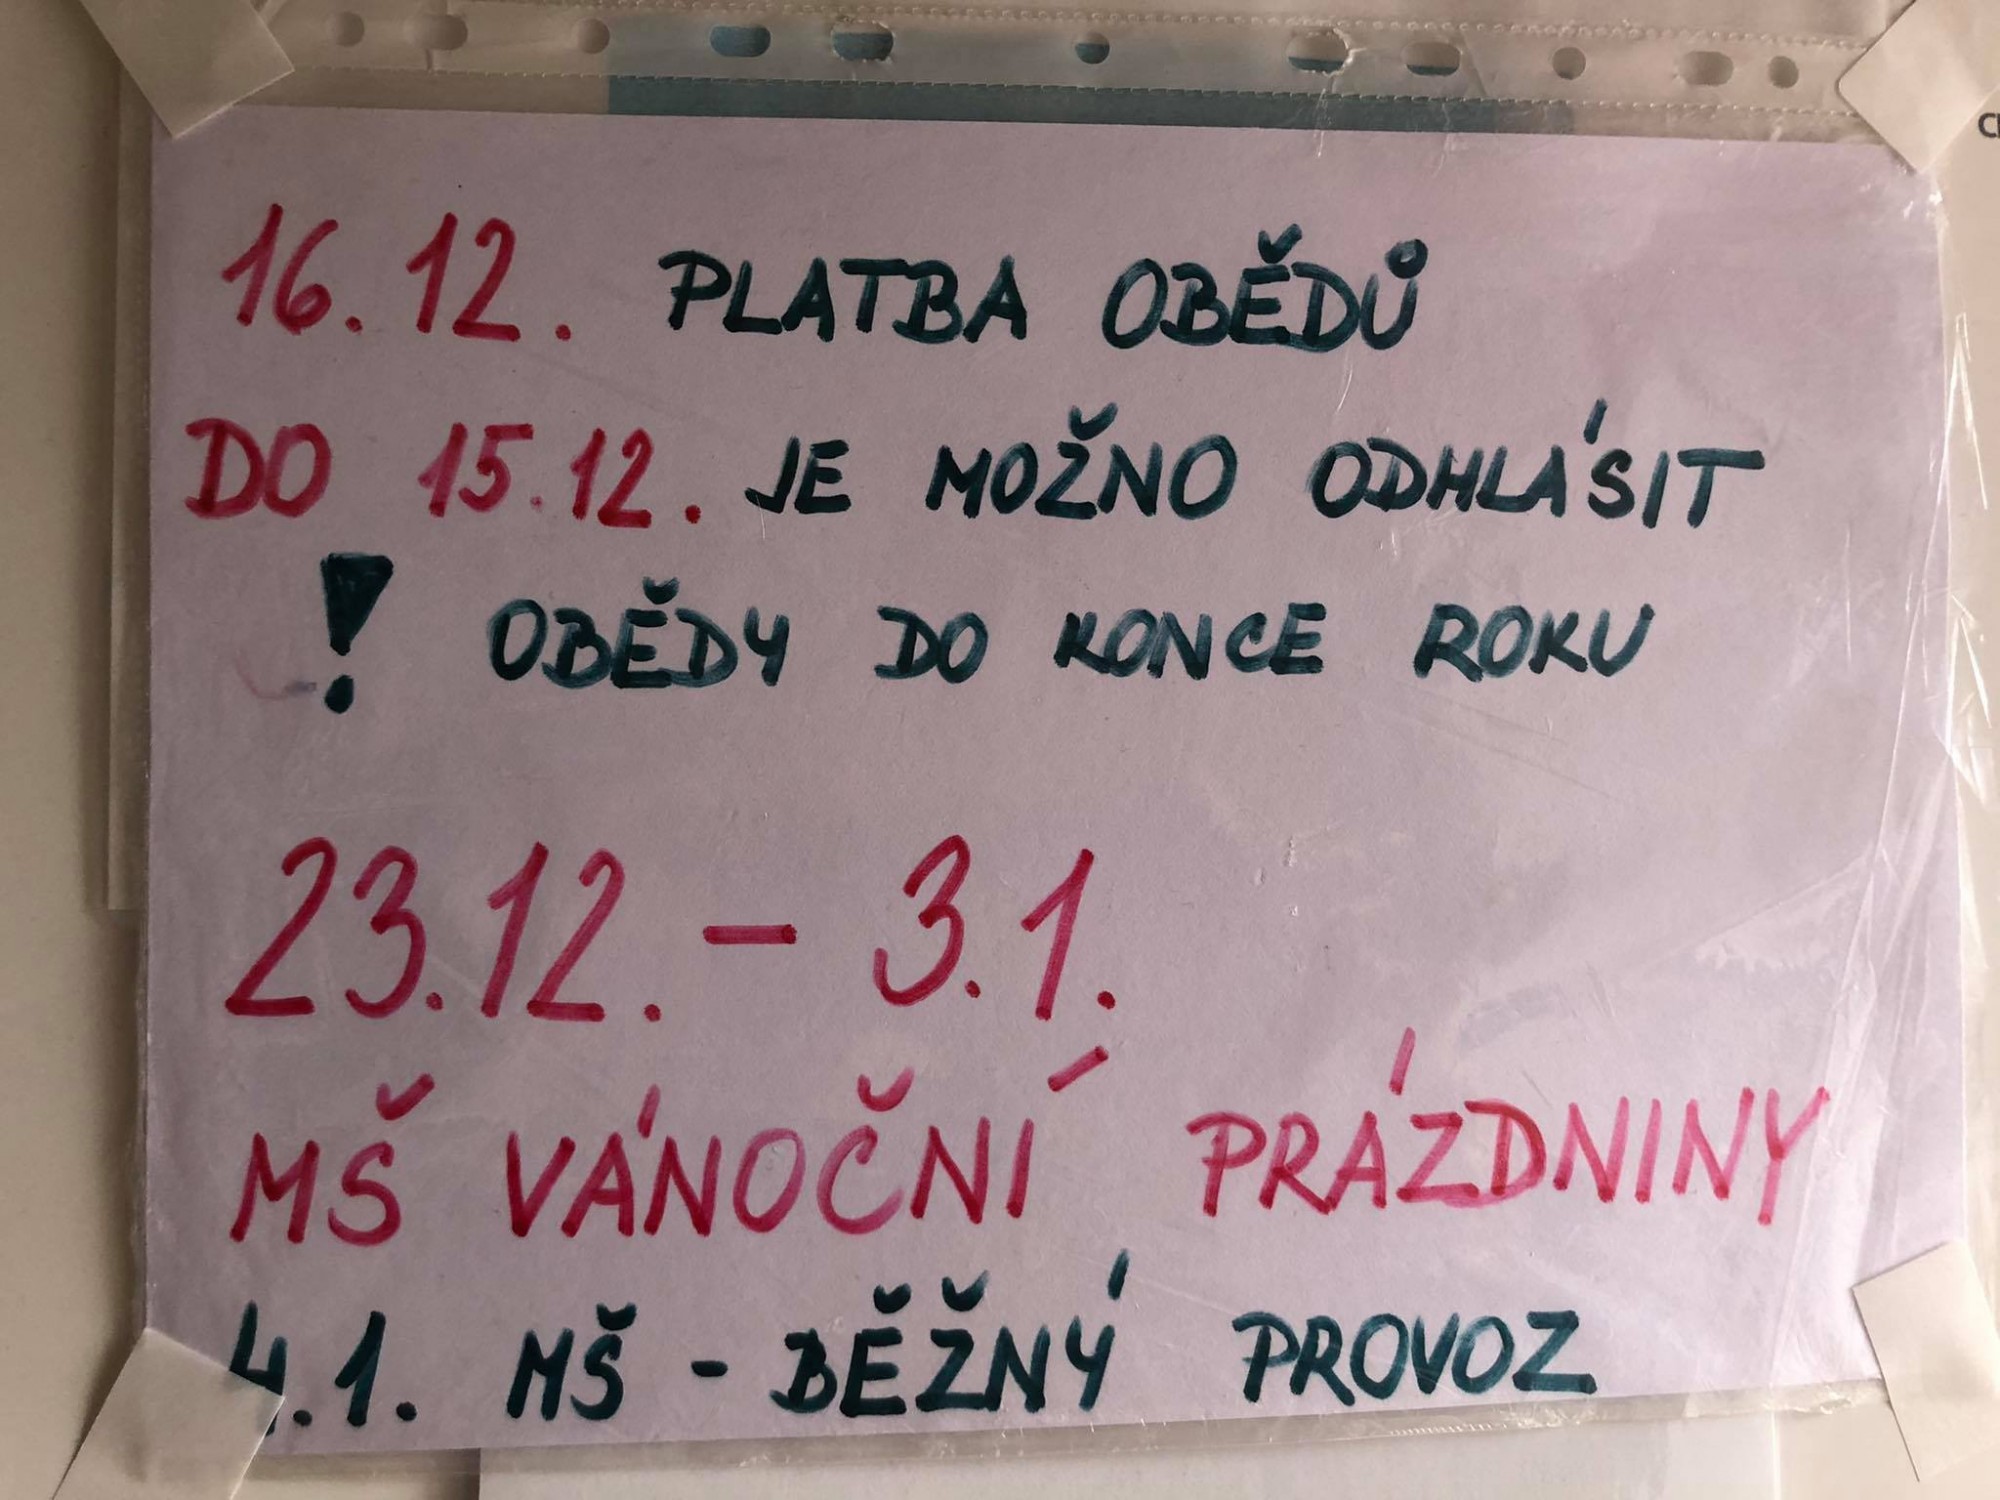 16.12. PLATBA OBĚDŮ
DO 15.12. JE MOŽNO ODHLÁSIT
! OBĚDY DO KONCE ROKU
23.12. – 3.1.
MŠ VÁNOČNÍ PRÁZDNINY
4.1. MŠ - BĚŽNÝ PROVOZ